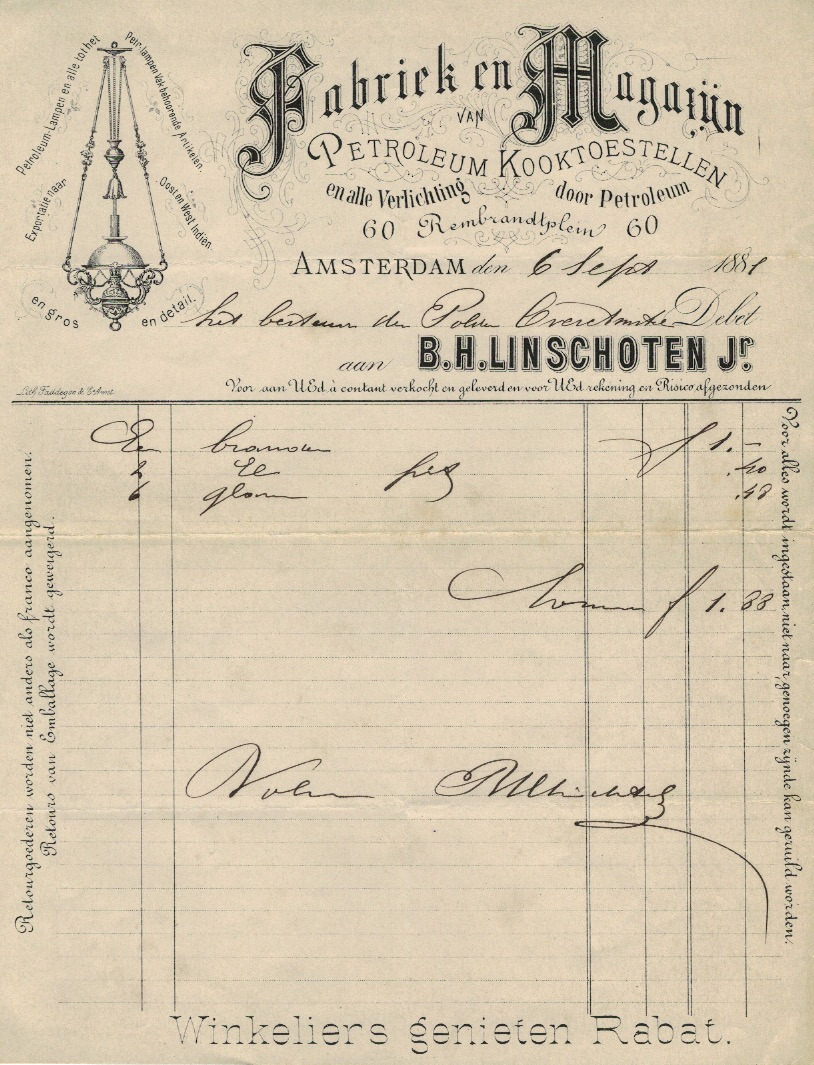 Petroleum-Lampen en alle tot het
Petr. lampen Vak behoorende Artikelen.
Exportatie naar
Oost en West Indiën.
en gros
en detail.
Fabriek en Magazijn
VAN
PETROLEUM KOOKTOESTELLEN
en alle Verlichting door Petroleum
60 Rembrandtplein 60
AMSTERDAM den 6 Sept 1881
het bestuur der Polder Debet
aan B.H. LINSCHOTEN Jr.
Voor aan UEd. à contant verkocht en geleverd en voor UEd rekening en Risico afgezonden
Lith. Faddegon & Co Amst.
Een brander f 1.-
2 .40
6 .48
f 1.88
Voldaan
Retourgoederen worden niet anders als franco aangenomen.
Retouro van Emballage wordt geweigerd.
Voor alles wordt ingestaan, niet naar genoegen zijnde kan geruild worden.
Winkeliers genieten Rabat.